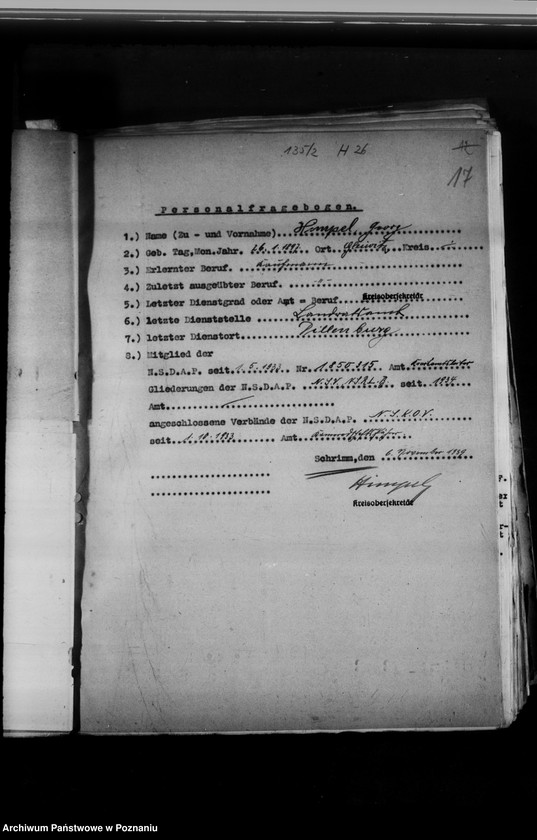 135/2 H 26
17
Personalfragebogen.
1.) Name (Zu - und Vorname)....Himpel Georg
2.) Geb. Tag,Mon.Jahr. 26.1.1892. Ort. Gleiwitz.Kreis.
3.) Erlernter Beruf. Kaufmann
4.) Zuletzt ausgeübter Beruf.
5.) Letzter Dienstgrad oder Amt - Beruf Kreisobersekretär
6.) letzte Dienststelle Landratsamt
7.) letzter Dienstort. Dillenburg
8.) Mitglied der
N.S.D.A.P. seit 1.5.1933. Nr. Amt.
Gliederungen der N.S.D.A.P. N.S.V. N.S.R.L.B. seit. 1934
Amt.
angeschlossene Verbände der N.S.D.A.P. N.S.K.O.V.
seit. 1.10.1933 Amt.
Schrimm,den 6. November 1939
Himpel
Kreisobersekretär
Archiwum Państwowe w Poznaniu